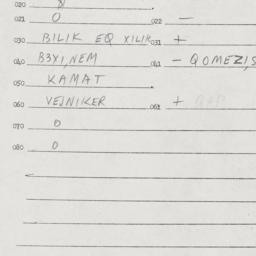 020
021 O 022 —
030 BILIK EQ XILIK 031 +
040 B3YI, NEM 041 — QOMEZI,S
050 KAMAT
060 VEJNIKER 061 +
070 O
080 O